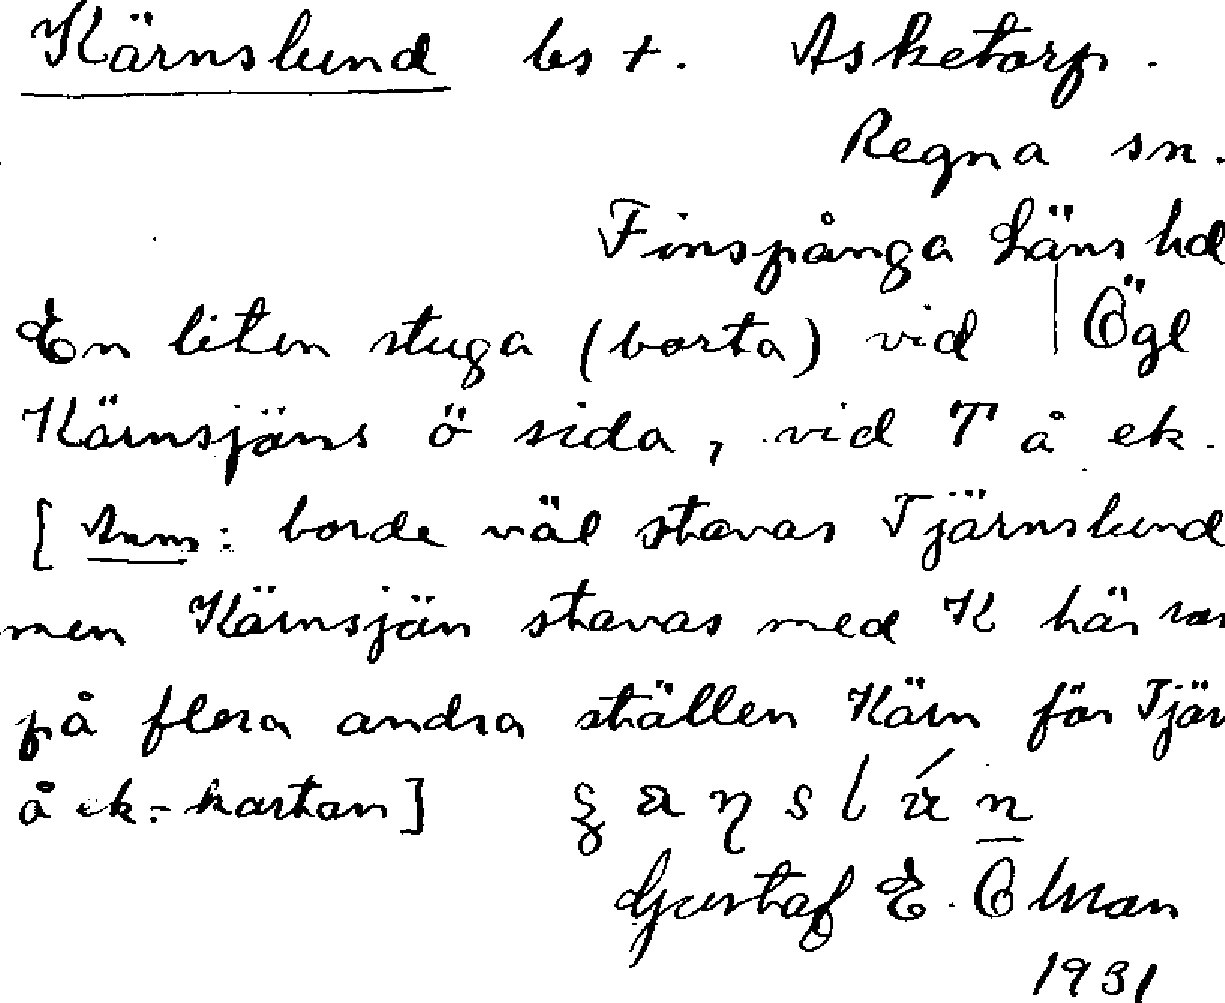 Kärnslund bs +. Asketorp.
Regna sn.
Finspånga Läns hd
En liten stuga (borta) vid | Ögl
Kärnsjäns ö sida, vid T å ek.
[Anm: borde väl stavas Tjärnslund
men Kärnsjän stavas med K här som
på flera andra ställen Kärn för Tjär
å ek.-kartan]
Gustaf E. Ölman
1931